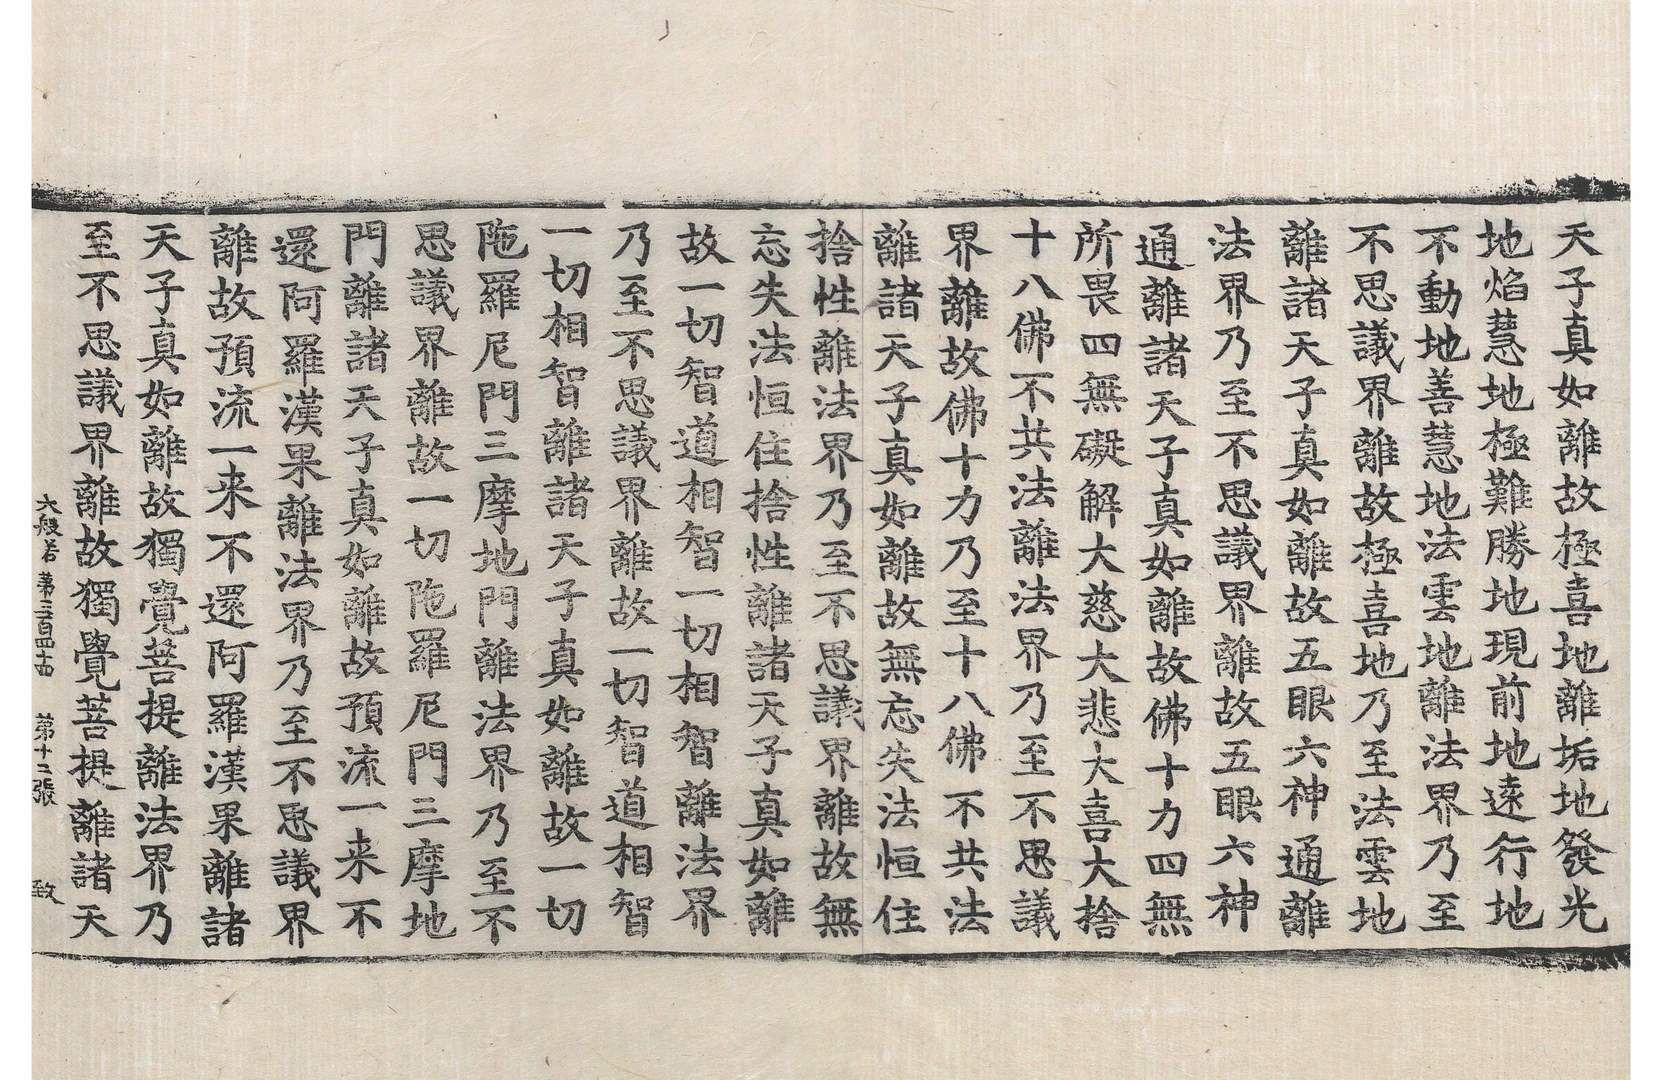 天子真如離故極喜地離垢地發光
地焰慧地極難勝地現前地遠行地
不動地善慧地法雲地離法界乃至
不思議界離故極喜地乃至法雲地
離諸天子真如離故五眼六神通離
法界乃至不思議界離故五眼六神
通離諸天子真如離故佛十力四無
所畏四無礙解大慈大悲大喜大捨
十八佛不共法離法界乃至不思議
界離故佛十力乃至十八佛不共法
離諸天子真如離故無忘失法恒住
捨性離法界乃至不思議界離故無
忘失法恒住捨性離諸天子真如離
故一切智道相智一切相智離法界
乃至不思議界離故一切智道相智
一切相智離諸天子真如離故一切
陁羅尼門三摩地門離法界乃至不
思議界離故一切陁羅尼門三摩地
門離諸天子真如離故預流一来不
還阿羅漢果離法界乃至不思議界
離故預流一来不還阿羅漢果離諸
天子真如離故獨覺菩提離法界乃
至不思議界離故獨覺菩提離諸天
大般若 苐三百四十四 苐十二張 致